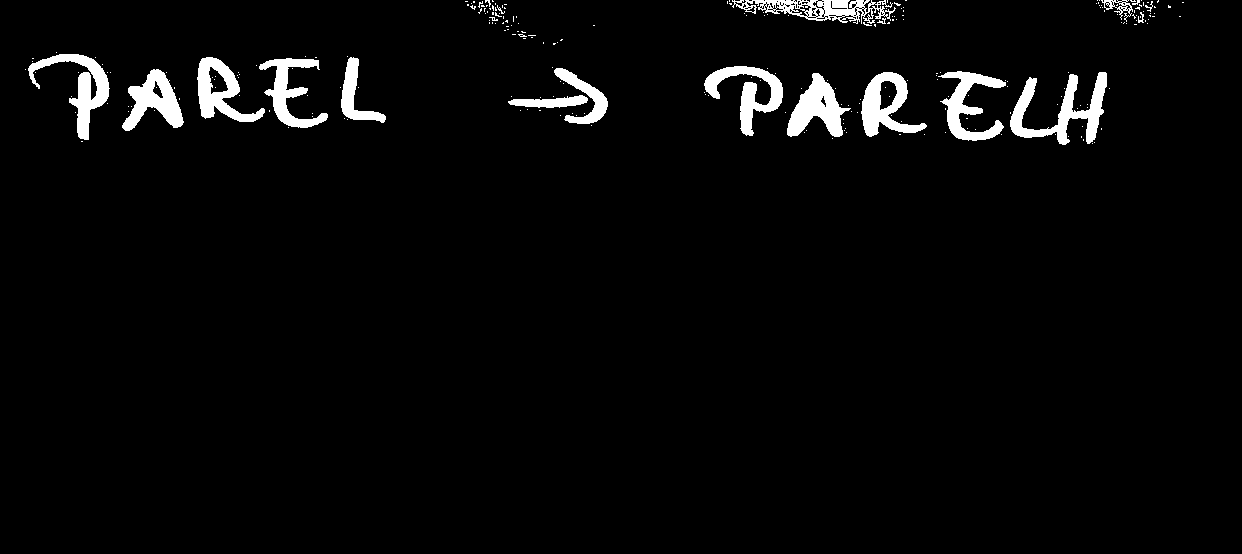 PAREL → PARELH